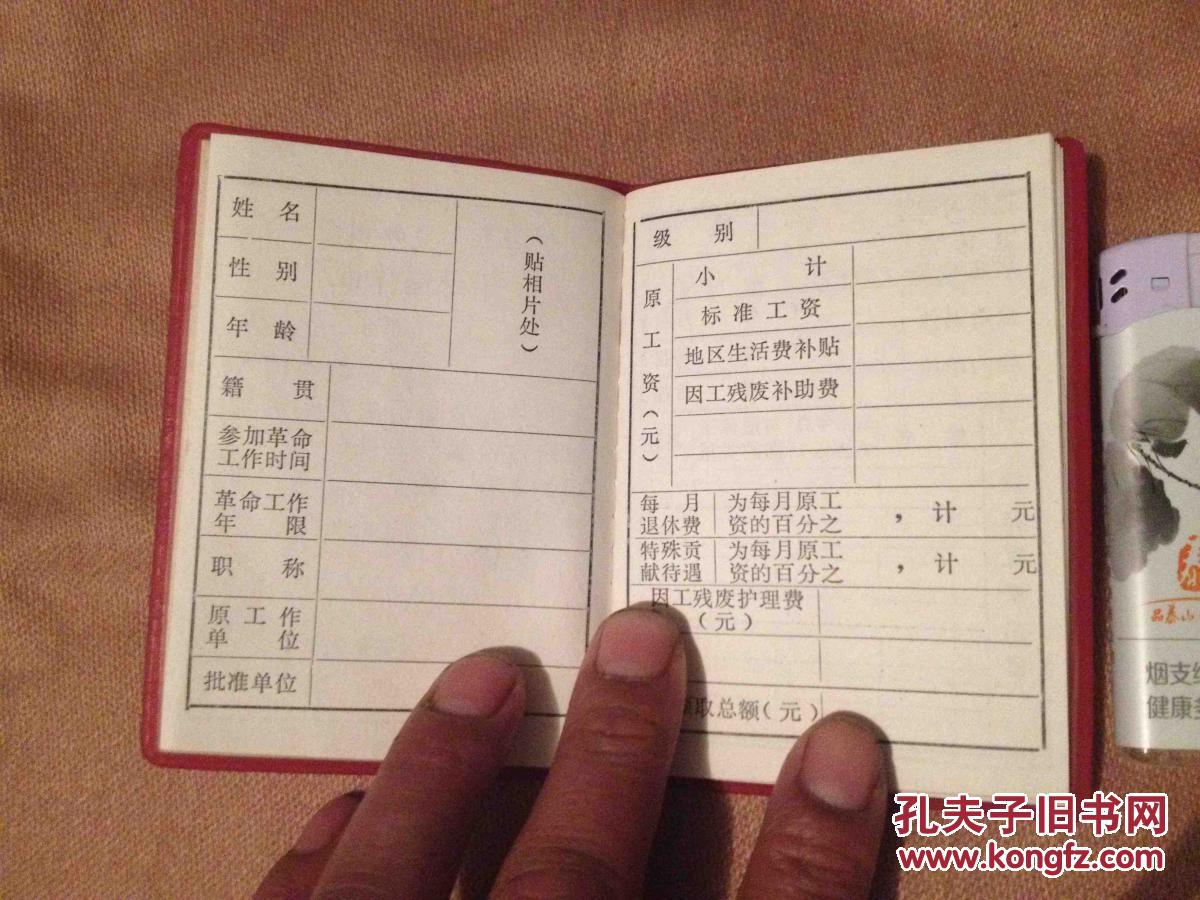 姓 名
性 别
年 龄
(贴相片处)
籍 贯
参加革命
工作时间
革命工作
年 限
职 称
原 工 作
单 位
批准单位
级 别
原工资(元)
小 计
标 准 工 资
地区生活费补贴
因工残废补助费
每 月
退休费
为每月原工
资的百分之 , 计 元
特殊贡
献待遇
为每月原工
资的百分之 , 计 元
因工残废护理费
(元)
取总额(元)
烟支
健康
孔夫子旧书网
www.kongfz.com